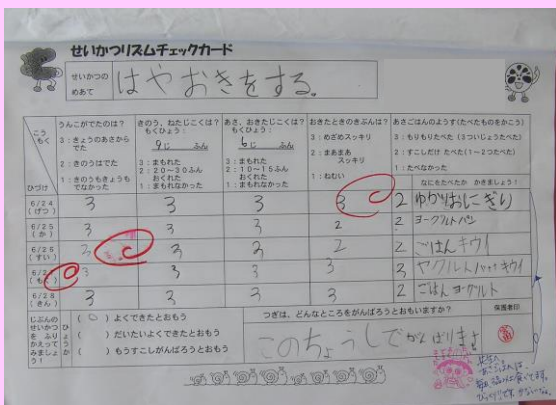 せいかつリズムチェックカード
せいかつの
めあて
はやおきをする。
こう
もく
ひづけ
うんこがでたのは？
3：きょうのあさから
でた
2：きのうはでた
1：きのうもきょうも
でなかった
きのう、ねたじこくは？
もくひょう：
9じ ふん
3：まもれた
2：20～30ふん
おくれた
1：まもれなかった
あさ、おきたじこくは？
もくひょう：
6じ ふん
3：まもれた
2：10～15ふん
おくれた
1：まもれなかった
おきたときのきぶんは？
3：めざめスッキリ
2：まあまあ
スッキリ
1：ねむい
あさごはんのようす(たべたものをかこう)
3：もりもりたべた (3ついじょうたべた)
2：すこしだけ たべた(1～2つたべた)
1：たべなかった
なにをたべたか かきましょう！
6/24
(げつ)
3 3 3 3 2 ゆかりおにぎり
6/25
(か)
3 3 3 2 2 ヨーグルトパン
6/26
(すい)
3 3 3 2 2 ごはんキウイ
3 3 3 3 3 ヤクルト キウイ
6/28
(きん)
3 3 3 3 2 ごはんヨーグルト
じぶんの
せいかつ
を ふり
かえって
みましょ
う
ひ
ょ
う
か
( ○ ) よくできたとおもう
( ) だいたいよくできたとおもう
( ) もうすこしがんばろうとおもう
つぎは、どんなところをがんばろうとおもいますか？
このちょうしでがんばります
保護者印